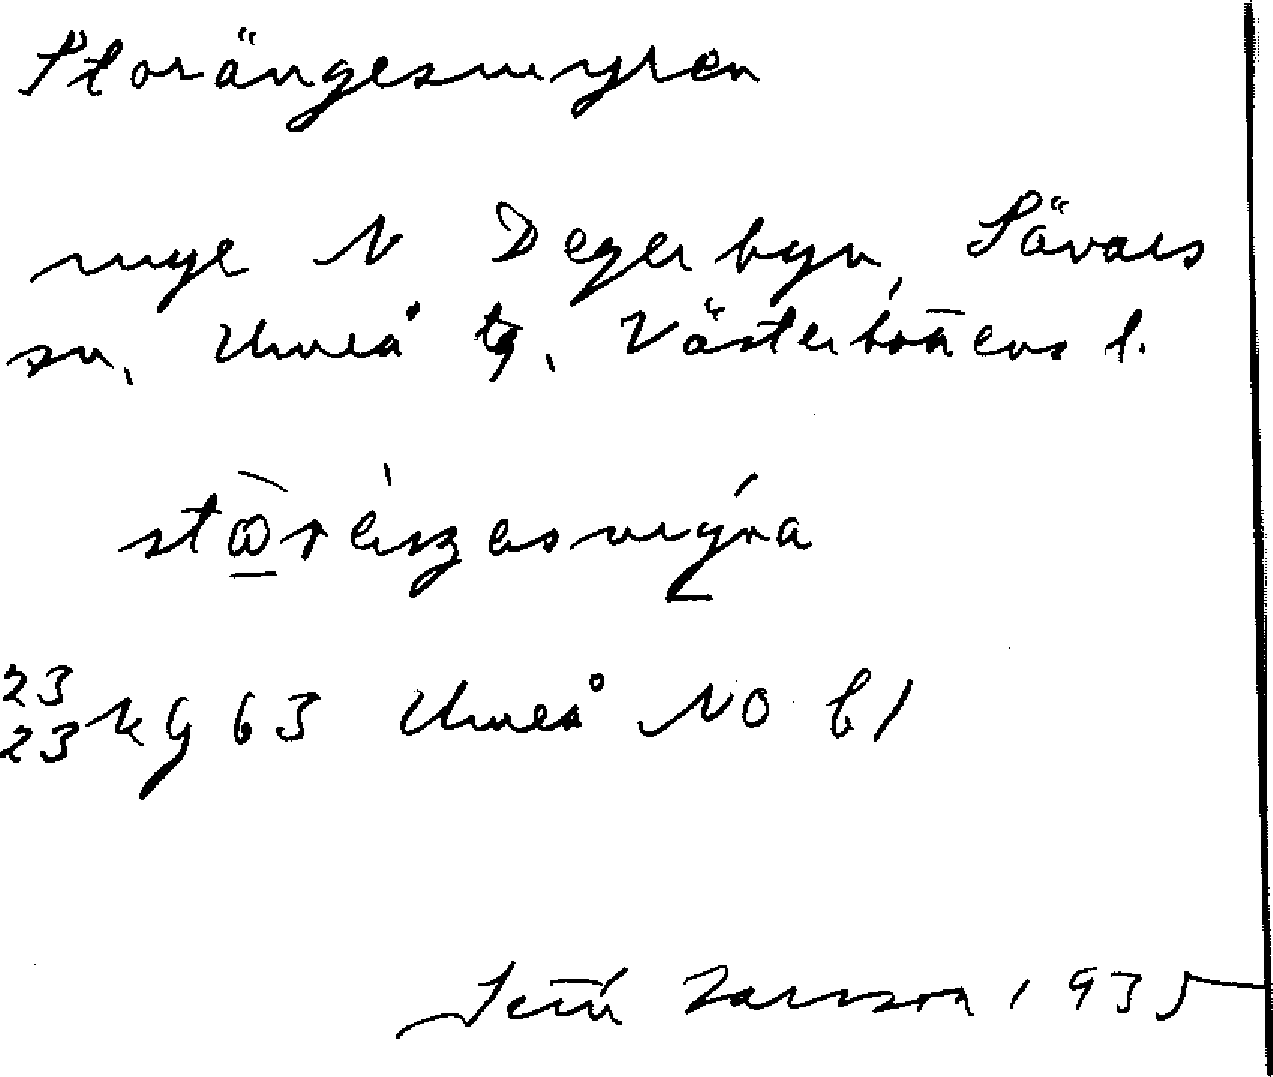 Storängesmyren
myr N Degerbyn, Sävars
sn, Umeå tg, Västerbottens l.
23
23 kg 63 Umeå NO b1
Larsson 1935